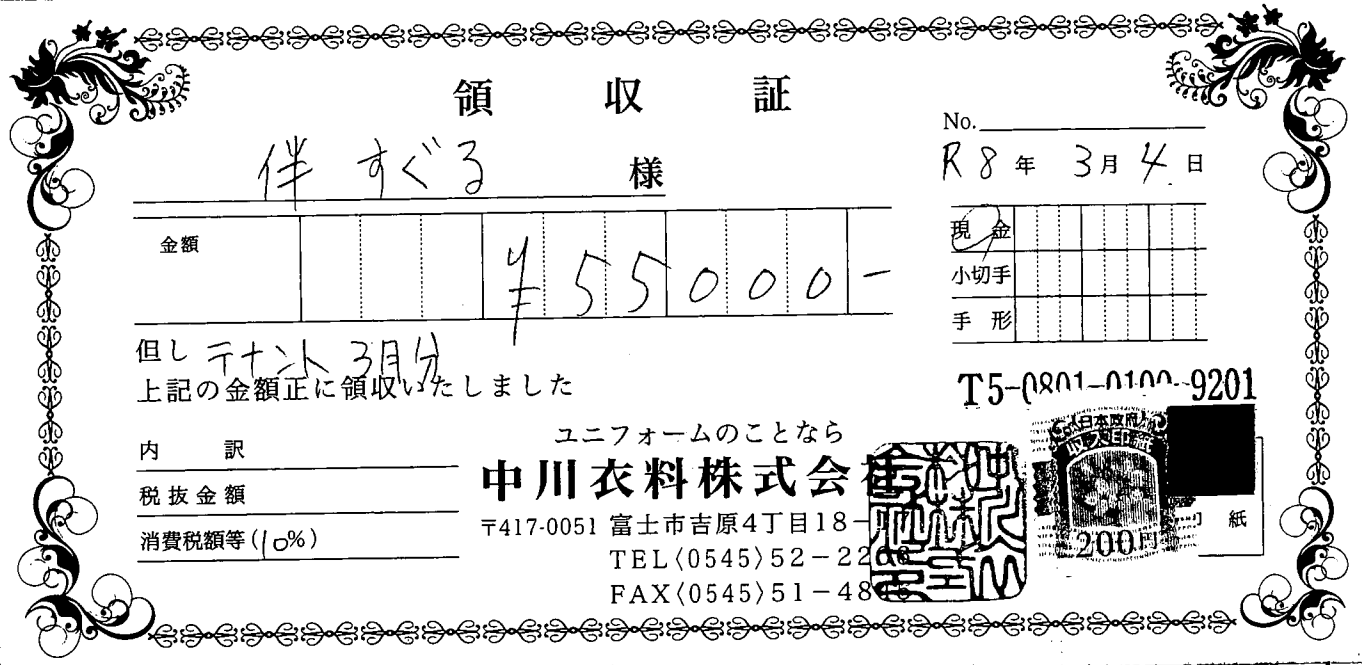 領収証
伴 すぐる 様
No.
R8年 3月 4日
金額 ¥55000-
現金
小切手
手形
但し テナント 3月分
上記の金額正に領収いたしました
T5-0801-0100-9201
内訳
税抜金額
消費税額等(10%)
ユニフォームのことなら
中川衣料株式会社
〒417-0051 富士市吉原4丁目18-
TEL〈0545〉52-22
FAX〈0545〉51-48
日本政府
200円
紙